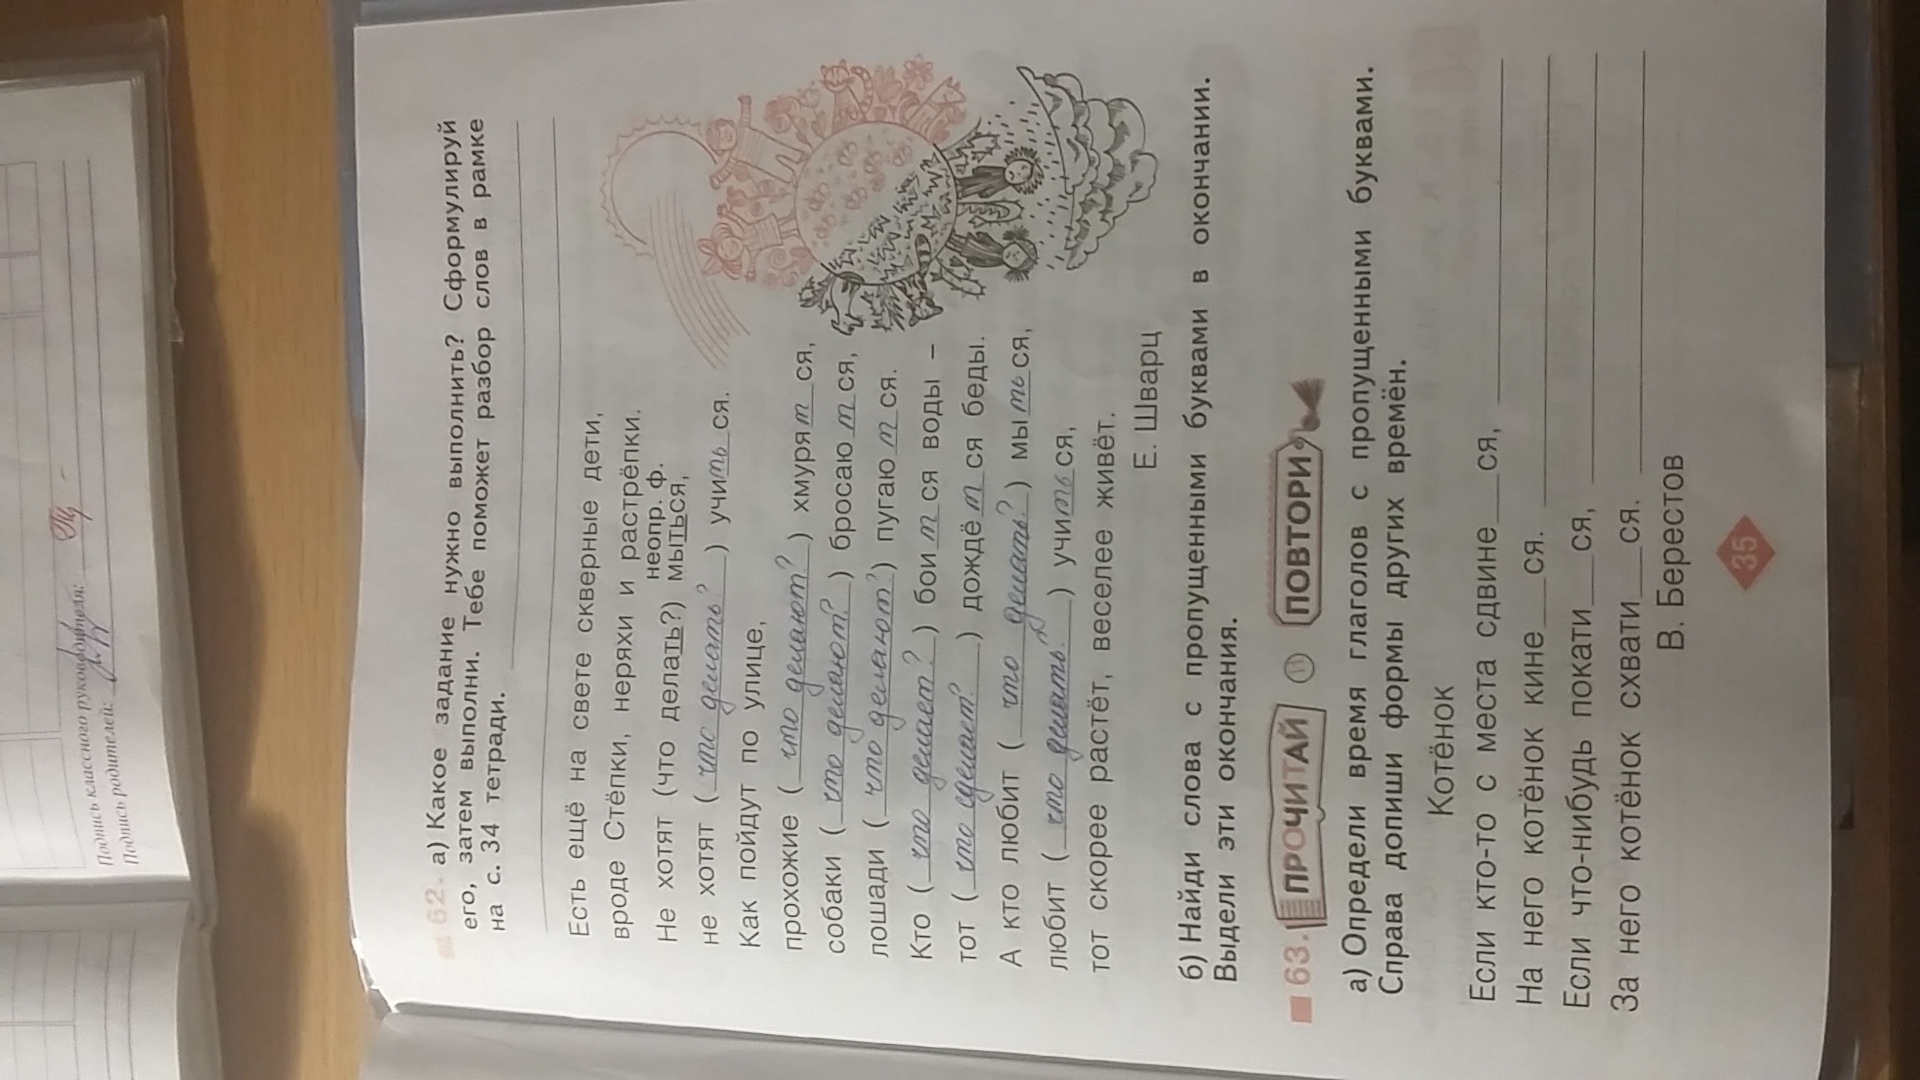 Подпись классного руководителя:
Подпись родителей:
62. а) Какое задание нужно выполнить? Сформулируй
его, затем выполни. Тебе поможет разбор слов в рамке
на с. 34 тетради.
Есть ещё на свете скверные дети,
вроде Стёпки, неряхи и растрёпки.
неопр. ф.
Не хотят (что делать?) мыться,
не хотят (что делать?) учиться.
Как пойдут по улице,
прохожие (что делают?) хмурятся,
собаки (что делают?) бросаются,
лошади (что делают?) пугаются.
Кто (что делает?) боится воды –
тот (что сделает?) дождётся беды.
А кто любит (что делать?) мыться,
любит (что делать?) учиться,
тот скорее растёт, веселее живёт.
Е. Шварц
б) Найди слова с пропущенными буквами в окончании.
Выдели эти окончания.
63. ПРОЧИТАЙ 11 ПОВТОРИ
а) Определи время глаголов с пропущенными буквами.
Справа допиши формы других времён.
Котёнок
Если кто-то с места сдвине__ся,
На него котёнок кине__ся.
Если что-нибудь покати__ся,
За него котёнок схвати__ся.
В. Берестов
35